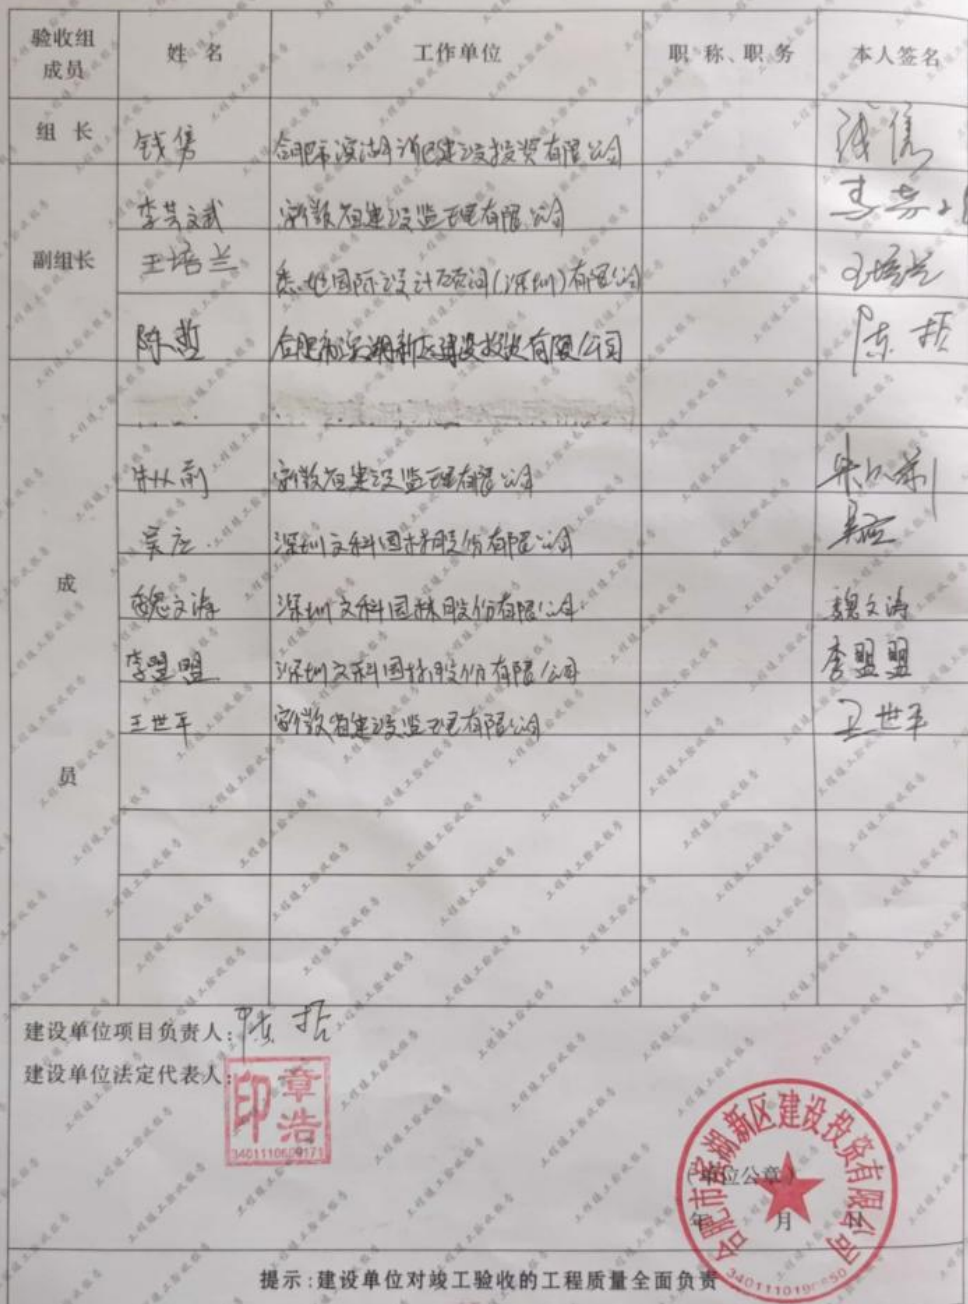 验收组成员 姓 名 工作单位 职 称、职 务 本人签名
组 长 钱隽 合肥市滨湖新区建设投资有限公司 钱隽
李芸文武 安徽省建设监理有限公司
副组长 王培兰 国际设计顾问(深圳)有限公司 王培兰
陈哲 合肥市滨湖新区建设投资有限公司 陈哲
安徽省建设监理有限公司
深圳文科园林股份有限公司
魏文海 深圳文科园林股份有限公司 魏文海
李盟盟 深圳文科园林股份有限公司 李盟盟
王世平 安徽省建设监理有限公司 王世平
成员
建设单位项目负责人: 陈哲
建设单位法定代表人:
章浩印
合肥市滨湖新区建设投资有限公司
(单位公章)
年 月 日
提示:建设单位对竣工验收的工程质量全面负责
工程竣工验收报告